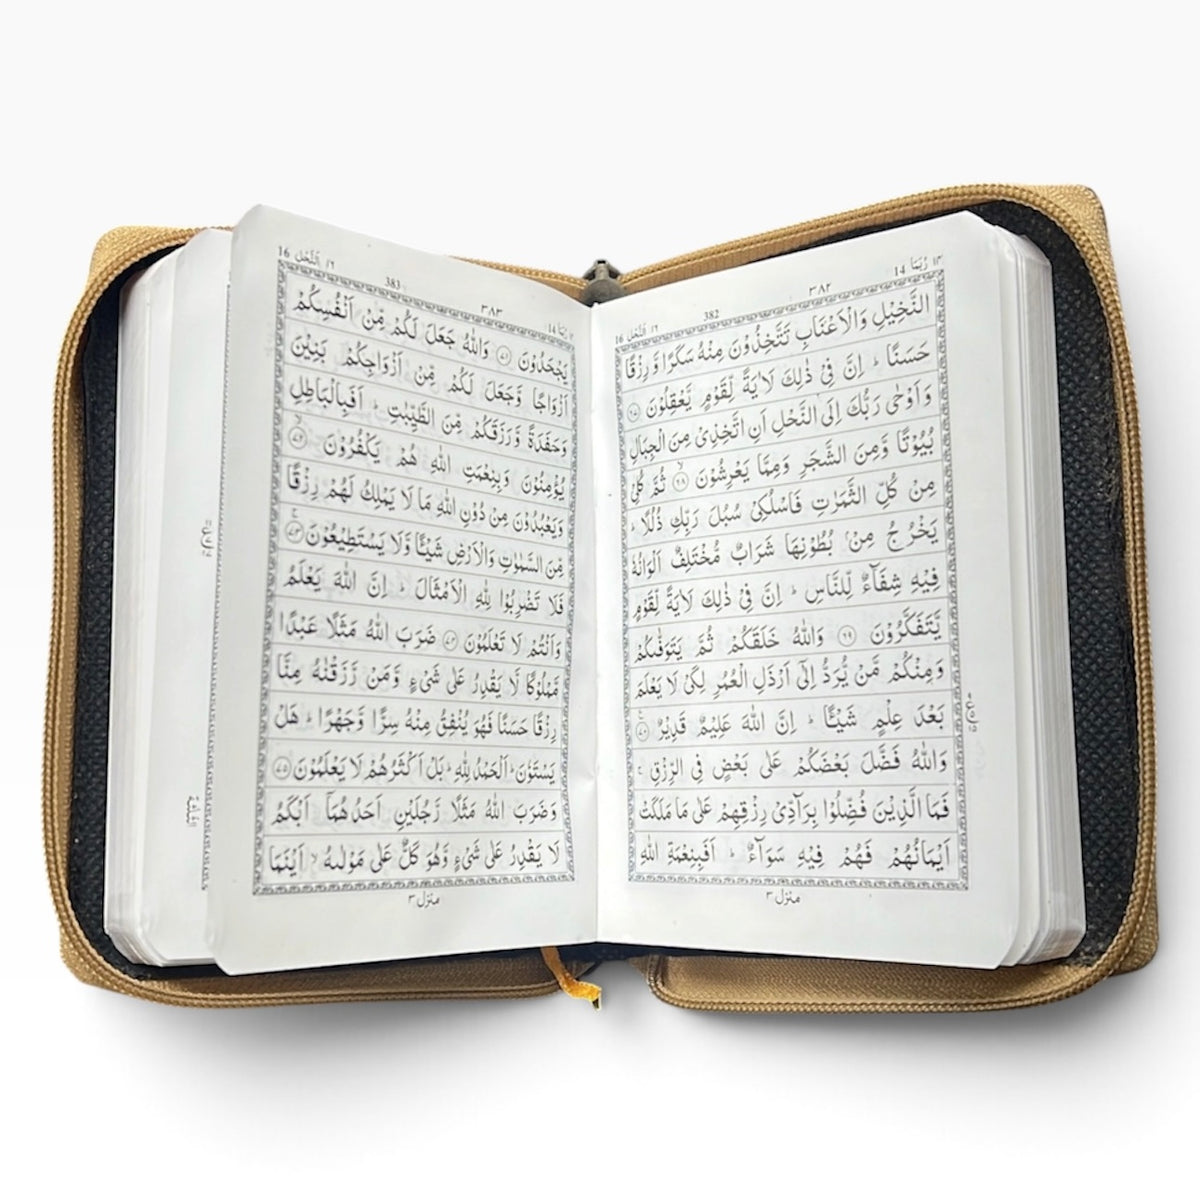 ١٤ رُبَمَا 14
٣٨٢
382
١٦ اَلنَّحْل 16
النَّخِيْلِ وَالْاَعْنَابِ تَتَّخِذُوْنَ مِنْهُ سَكَرًا وَّ رِزْقًا
حَسَنًا ؕ اِنَّ فِيْ ذٰلِكَ لَاٰيَةً لِّقَوْمٍ يَّعْقِلُوْنَ ۝۶۷
وَاَوْحٰى رَبُّكَ اِلَى النَّحْلِ اَنِ اتَّخِذِيْ مِنَ الْجِبَالِ
بُيُوْتًا وَّمِنَ الشَّجَرِ وَمِمَّا يَعْرِشُوْنَ ۝۶۸ۙ ثُمَّ كُلِيْ
مِنْ كُلِّ الثَّمَرٰتِ فَاسْلُكِيْ سُبُلَ رَبِّكِ ذُلُلًا ؕ
يَخْرُجُ مِنْۢ بُطُوْنِهَا شَرَابٌ مُّخْتَلِفٌ اَلْوَانُهٗ
فِيْهِ شِفَآءٌ لِّلنَّاسِ ؕ اِنَّ فِيْ ذٰلِكَ لَاٰيَةً لِّقَوْمٍ
يَّتَفَكَّرُوْنَ ۝۶۹ وَاللّٰهُ خَلَقَكُمْ ثُمَّ يَتَوَفّٰىكُمْ
وَمِنْكُمْ مَّنْ يُّرَدُّ اِلٰٓى اَرْذَلِ الْعُمُرِ لِكَيْ لَا يَعْلَمَ
بَعْدَ عِلْمٍ شَيْـًٔا ؕ اِنَّ اللّٰهَ عَلِيْمٌ قَدِيْرٌ ۝۷۰
وَاللّٰهُ فَضَّلَ بَعْضَكُمْ عَلٰى بَعْضٍ فِى الرِّزْقِ ۚ
فَمَا الَّذِيْنَ فُضِّلُوْا بِرَآدِّيْ رِزْقِهِمْ عَلٰى مَا مَلَكَتْ
اَيْمَانُهُمْ فَهُمْ فِيْهِ سَوَآءٌ ؕ اَفَبِنِعْمَةِ اللّٰهِ
منزل ٣
رُبَمَا 14
٣٨٣
383
١٦ اَلنَّحْل 16
يَجْحَدُوْنَ ۝۷۱ وَاللّٰهُ جَعَلَ لَكُمْ مِّنْ اَنْفُسِكُمْ
اَزْوَاجًا وَّجَعَلَ لَكُمْ مِّنْ اَزْوَاجِكُمْ بَنِيْنَ
وَحَفَدَةً وَّرَزَقَكُمْ مِّنَ الطَّيِّبٰتِ ؕ اَفَبِالْبَاطِلِ
يُؤْمِنُوْنَ وَبِنِعْمَتِ اللّٰهِ هُمْ يَكْفُرُوْنَ ۝۷۲ۙ
وَيَعْبُدُوْنَ مِنْ دُوْنِ اللّٰهِ مَا لَا يَمْلِكُ لَهُمْ رِزْقًا
مِّنَ السَّمٰوٰتِ وَالْاَرْضِ شَيْـًٔا وَّلَا يَسْتَطِيْعُوْنَ ۝۷۳ۚ
فَلَا تَضْرِبُوْا لِلّٰهِ الْاَمْثَالَ ؕ اِنَّ اللّٰهَ يَعْلَمُ
وَاَنْتُمْ لَا تَعْلَمُوْنَ ۝۷۴ ضَرَبَ اللّٰهُ مَثَلًا عَبْدًا
مَّمْلُوْكًا لَّا يَقْدِرُ عَلٰى شَيْءٍ وَّمَنْ رَّزَقْنٰهُ مِنَّا
رِزْقًا حَسَنًا فَهُوَ يُنْفِقُ مِنْهُ سِرًّا وَّجَهْرًا ؕ هَلْ
يَسْتَوٗنَ ؕ اَلْحَمْدُ لِلّٰهِ ؕ بَلْ اَكْثَرُهُمْ لَا يَعْلَمُوْنَ ۝۷۵
وَضَرَبَ اللّٰهُ مَثَلًا رَّجُلَيْنِ اَحَدُهُمَاۤ اَبْكَمُ
لَا يَقْدِرُ عَلٰى شَيْءٍ وَّهُوَ كَلٌّ عَلٰى مَوْلٰىهُ ۙ اَيْنَمَا
منزل ٣